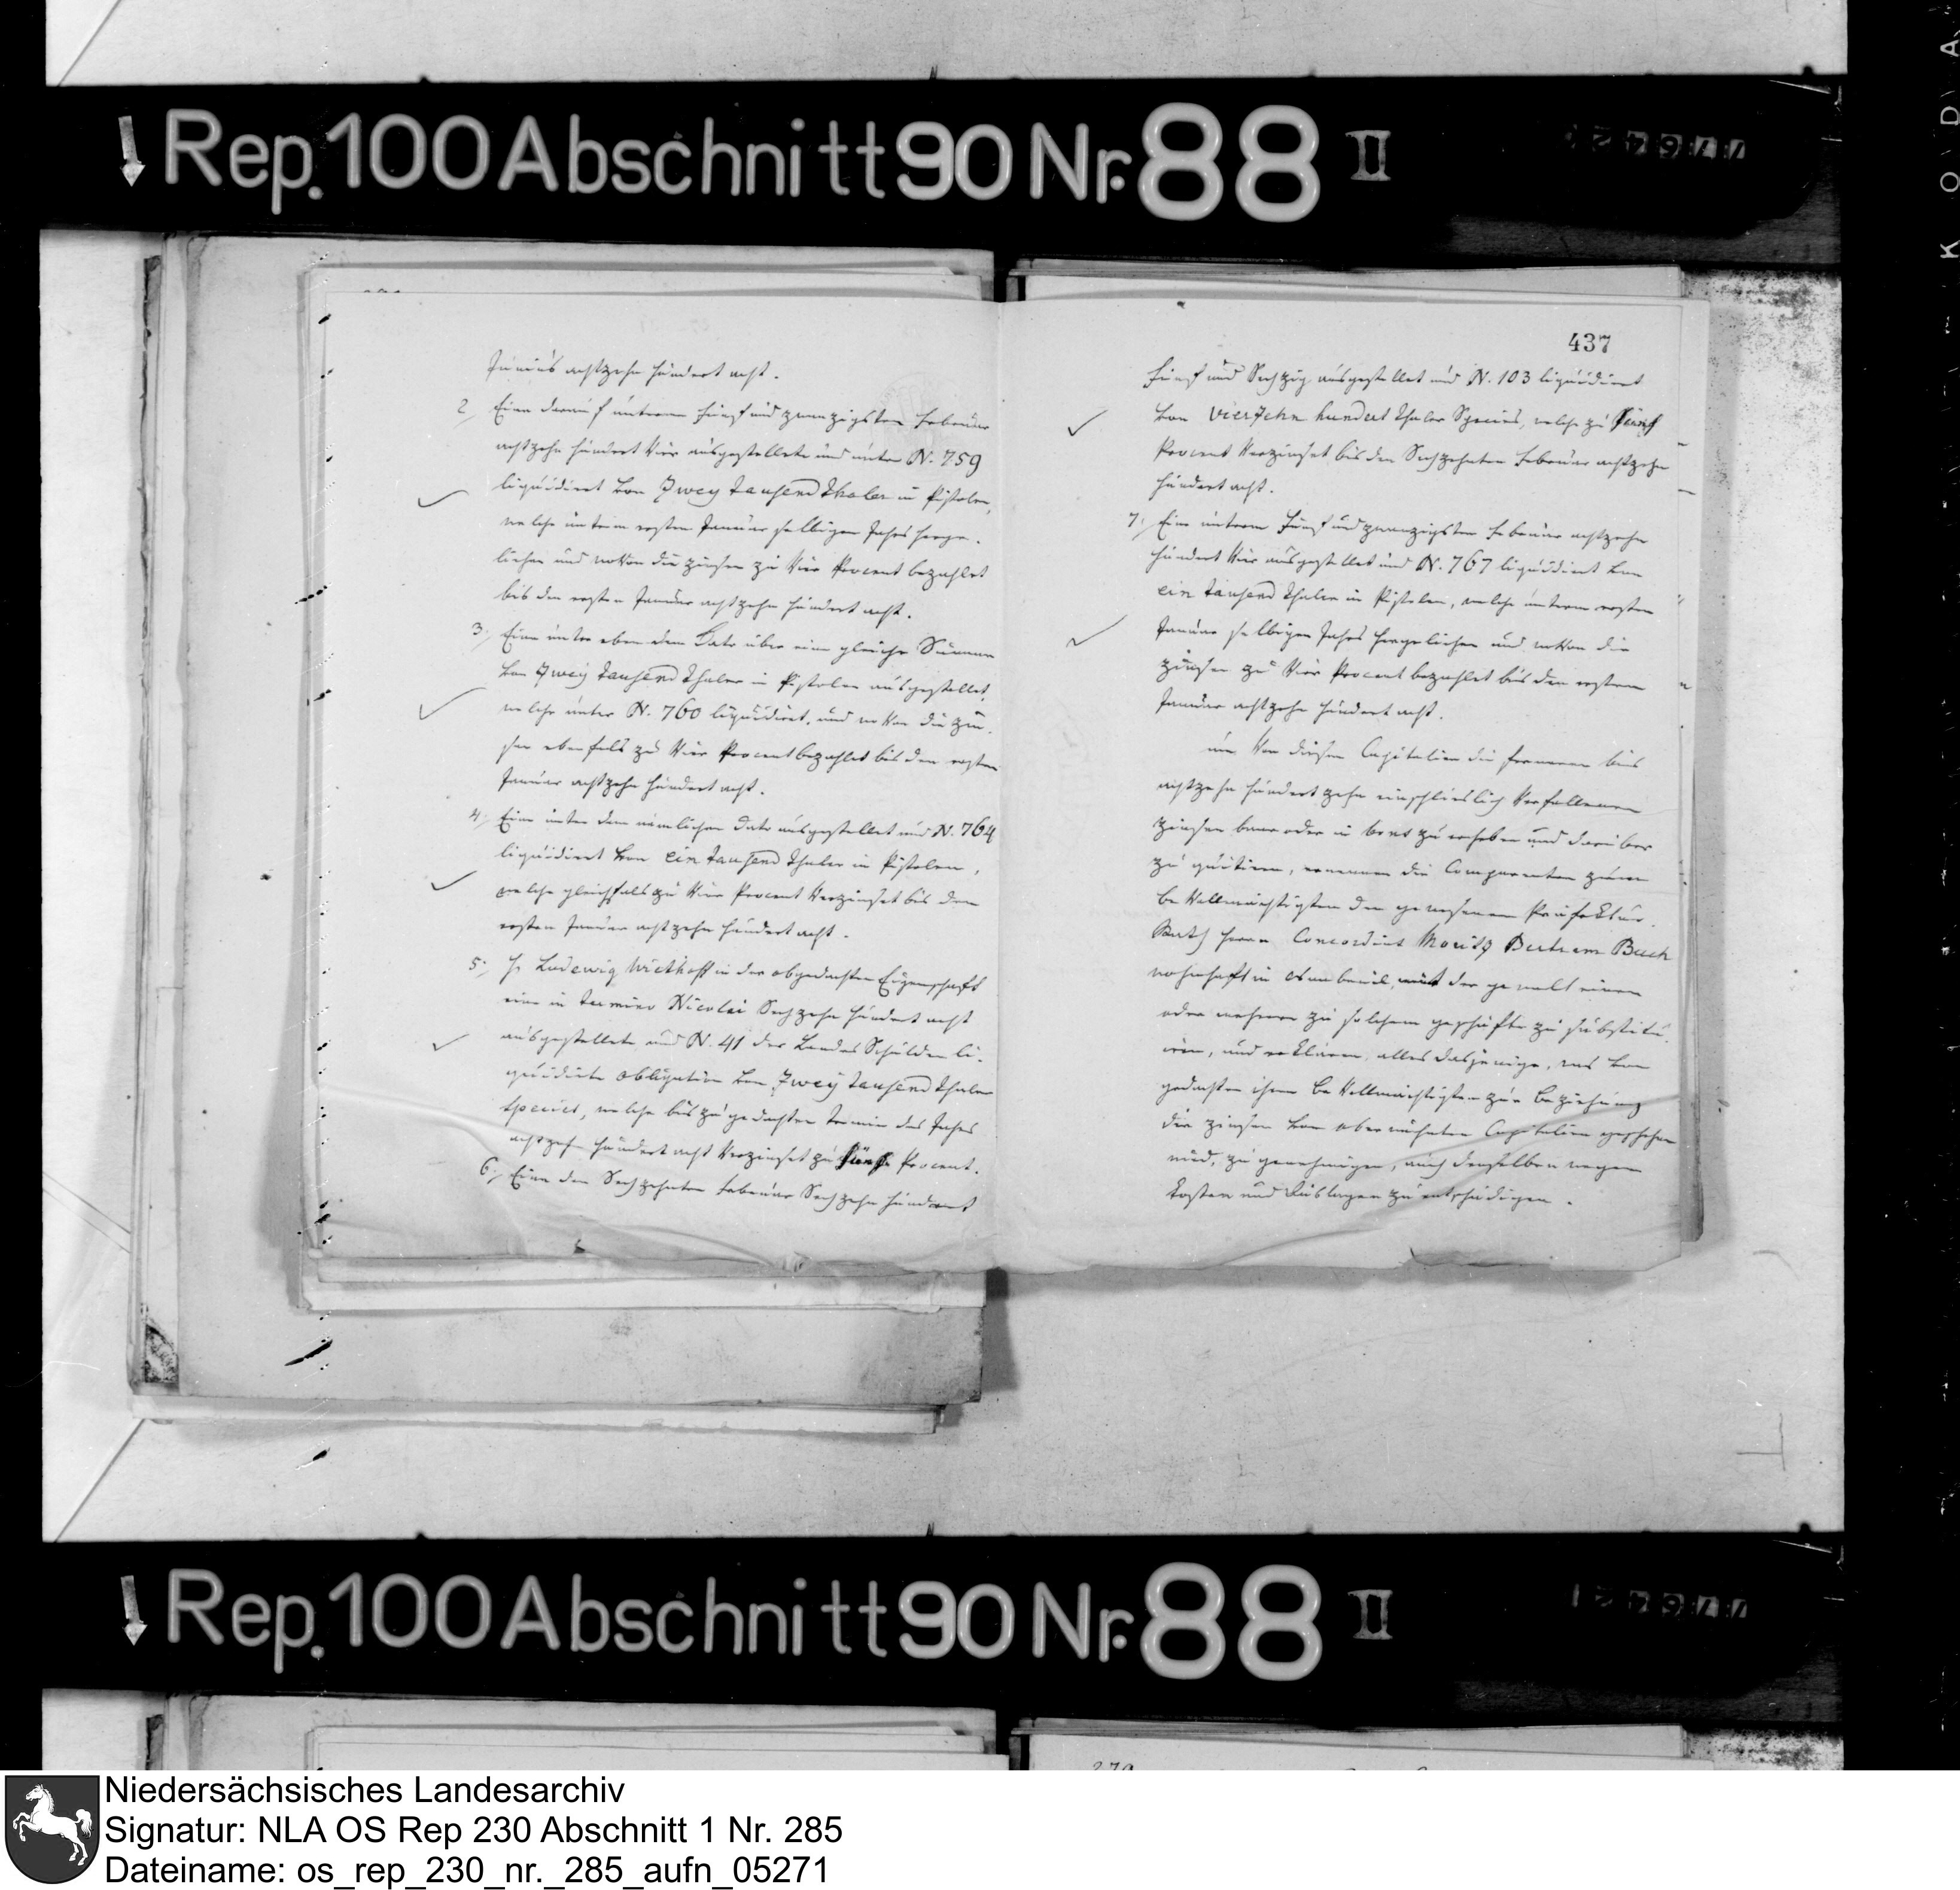 Rep. 100 Abschnitt 90 Nr. 88 II
Junius achtzehn hundert acht.
2, Eine darauf unterm Fünf und zwanzigsten Februar
achtzehn hundert Vier ausgestellete und unter N. 759
liquidirt von Zwey tausend Thaler in Pistolen,
welche unterm ersten Januar selbigen Jahrs herge-
liehen und wovon die Zinsen zu Vier Procent bezahlet
bis den ersten Januar achtzehn hundert acht.
3, Eine unter eben dem Dato über eine gleiche Summe
von Zwey tausend Thaler in Pistolen ausgestellet,
welche unter N. 760 liquidirt, und wovon die Zin-
sen ebenfals zu Vier Procent bezahlet bis den ersten
Januar achtzehn hundert acht.
4, Eine unter dem nämlichen Dato ausgestellet und N. 764
liquidirt von ein tausend Thaler in Pistolen,
welche gleichfals zu Vier Procent Verzinset bis den
ersten Januar achtzehn hundert acht.
5, H. Ludewig Wiethoff in der obgedachten Eigenschaft
eine in termino Nicolai Sechzehn hundert acht
ausgestellete und N. 41 der Landes Schulden li-
quidirte Obligation von Zwey tausend Thaler
Species, welche bis zu gedachten Termin des Jahrs
achtzehn hundert acht Verzinset zu fünf Procent.
6, Eine den Sechzehnten Februar Sechzehn hundert
437
Fünf und Sechzig ausgestellet und N. 103 liquidirt
von Vierzehn hundert Thaler Species, welche zu Fünf
Procent Verzinset bis den Sechzehnten Februar achtzehn
hundert acht.
7, Eine unterm Fünf und zwanzigsten Februar achtzehn
hundert Vier ausgestellet und N. 767 liquidirt von
ein tausend Thaler in Pistolen, welche unterm ersten
Januar selbigen Jahrs hergeliehen und wovon die
Zinsen zu Vier Procent bezahlet bis den ersten
Januar achtzehn hundert acht.
um Von diesen Capitalien die ferneren bis
achtzehn hundert zehn einschlieslich Verfallenen
Zinsen baar oder in bons zu erheben und darüber
zu quitiren, ernennen die Comparenten zum
Bevollmächtigten den gewesenen Präfektur-
Rath Herrn Concordius Moritz Bertram Buch
wohnhaft in Osnabrück, mit der gewalt einen
oder mehrere zu solchem geschäfte zu substitu-
iren, und erklären, alles dasjenige, was von
gedachten ihren Bevollmächtigten zur Beziehung
der Zinsen von oberwähnten Capitalien geschehen
wird, zu genehmigen, auch denselben wegen
Kosten und Auslagen zu entschädigen.
Rep. 100 Abschnitt 90 Nr. 88 II
Niedersächsisches Landesarchiv
Signatur: NLA OS Rep 230 Abschnitt 1 Nr. 285
Dateiname: os_rep_230_nr._285_aufn_05271